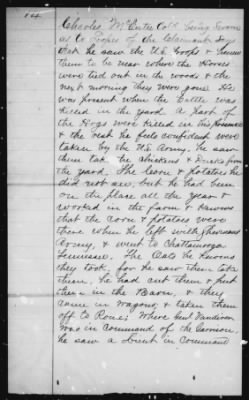 14
Charles McEntee Cold being Sworn
as to Losses of the Claimant says
that he saw the U.S. Troops & knows
them to be near where the Horses
were tied out in the woods & the
next morning they were gone He
was present when the Cattle was
killed in the yard. A part of
the Hogs were killed in his presence
& the rest he feels confident were
taken by the U.S. Army. he saw
them take the chickens & Ducks from
the yard. The corn & potatoes he
did not see, but he had been
on the place all the year &
worked in the farm & knows
that the corn & potatoes were
there when he left with Shermans
Army, & went to Chattanooga
Tennessee. The Oats he knows
they took, for he saw them take
them, he had cut them & put
them in the Barn, & they
came in wagons & taken them
off to Rome; where Genl Vandiver
was in command of the Garrison,
he saw a Lieut in command